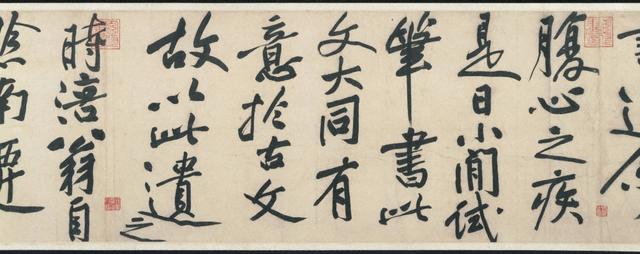 腹心之疾
是日小閒試
筆書此
文大同有
意於古文
故以此遺之
時涪翁自
黔南遷